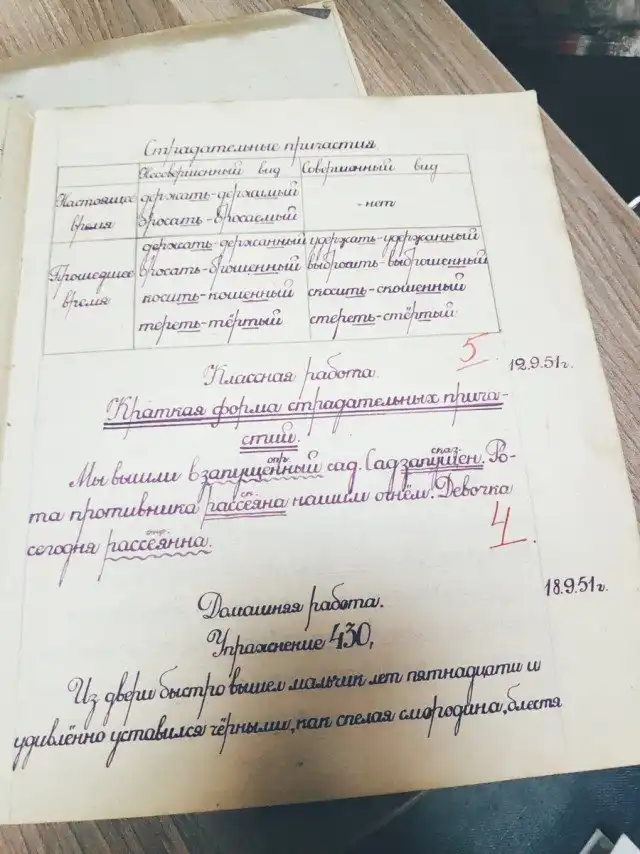 Страдательные причастия
Несовершенный вид Совершенный вид
Настоящее время держать-держимый - нет
бросать-бросаемый
Прошедшее время держать-держанный удержать-удержанный
бросать-брошенный выбросить-выброшенный
косить-кошенный скосить-скошенный
тереть-тёртый стереть-стёртый
5
12.9.51г.
Классная работа.
Краткая форма страдательных прича-
стий.
опр. сказ.
Мы вышли в запущенный сад. Сад запущен. Ро-
ск.
та противника рассеяна нашим огнём. Девочка
опр.
сегодня рассеянна.
4
18.9.51г.
Домашняя работа.
Упражнение 430,
Из двери быстро вышел мальчик лет пятнадцати и
удивлённо уставился чёрными, как спелая смородина, блестя